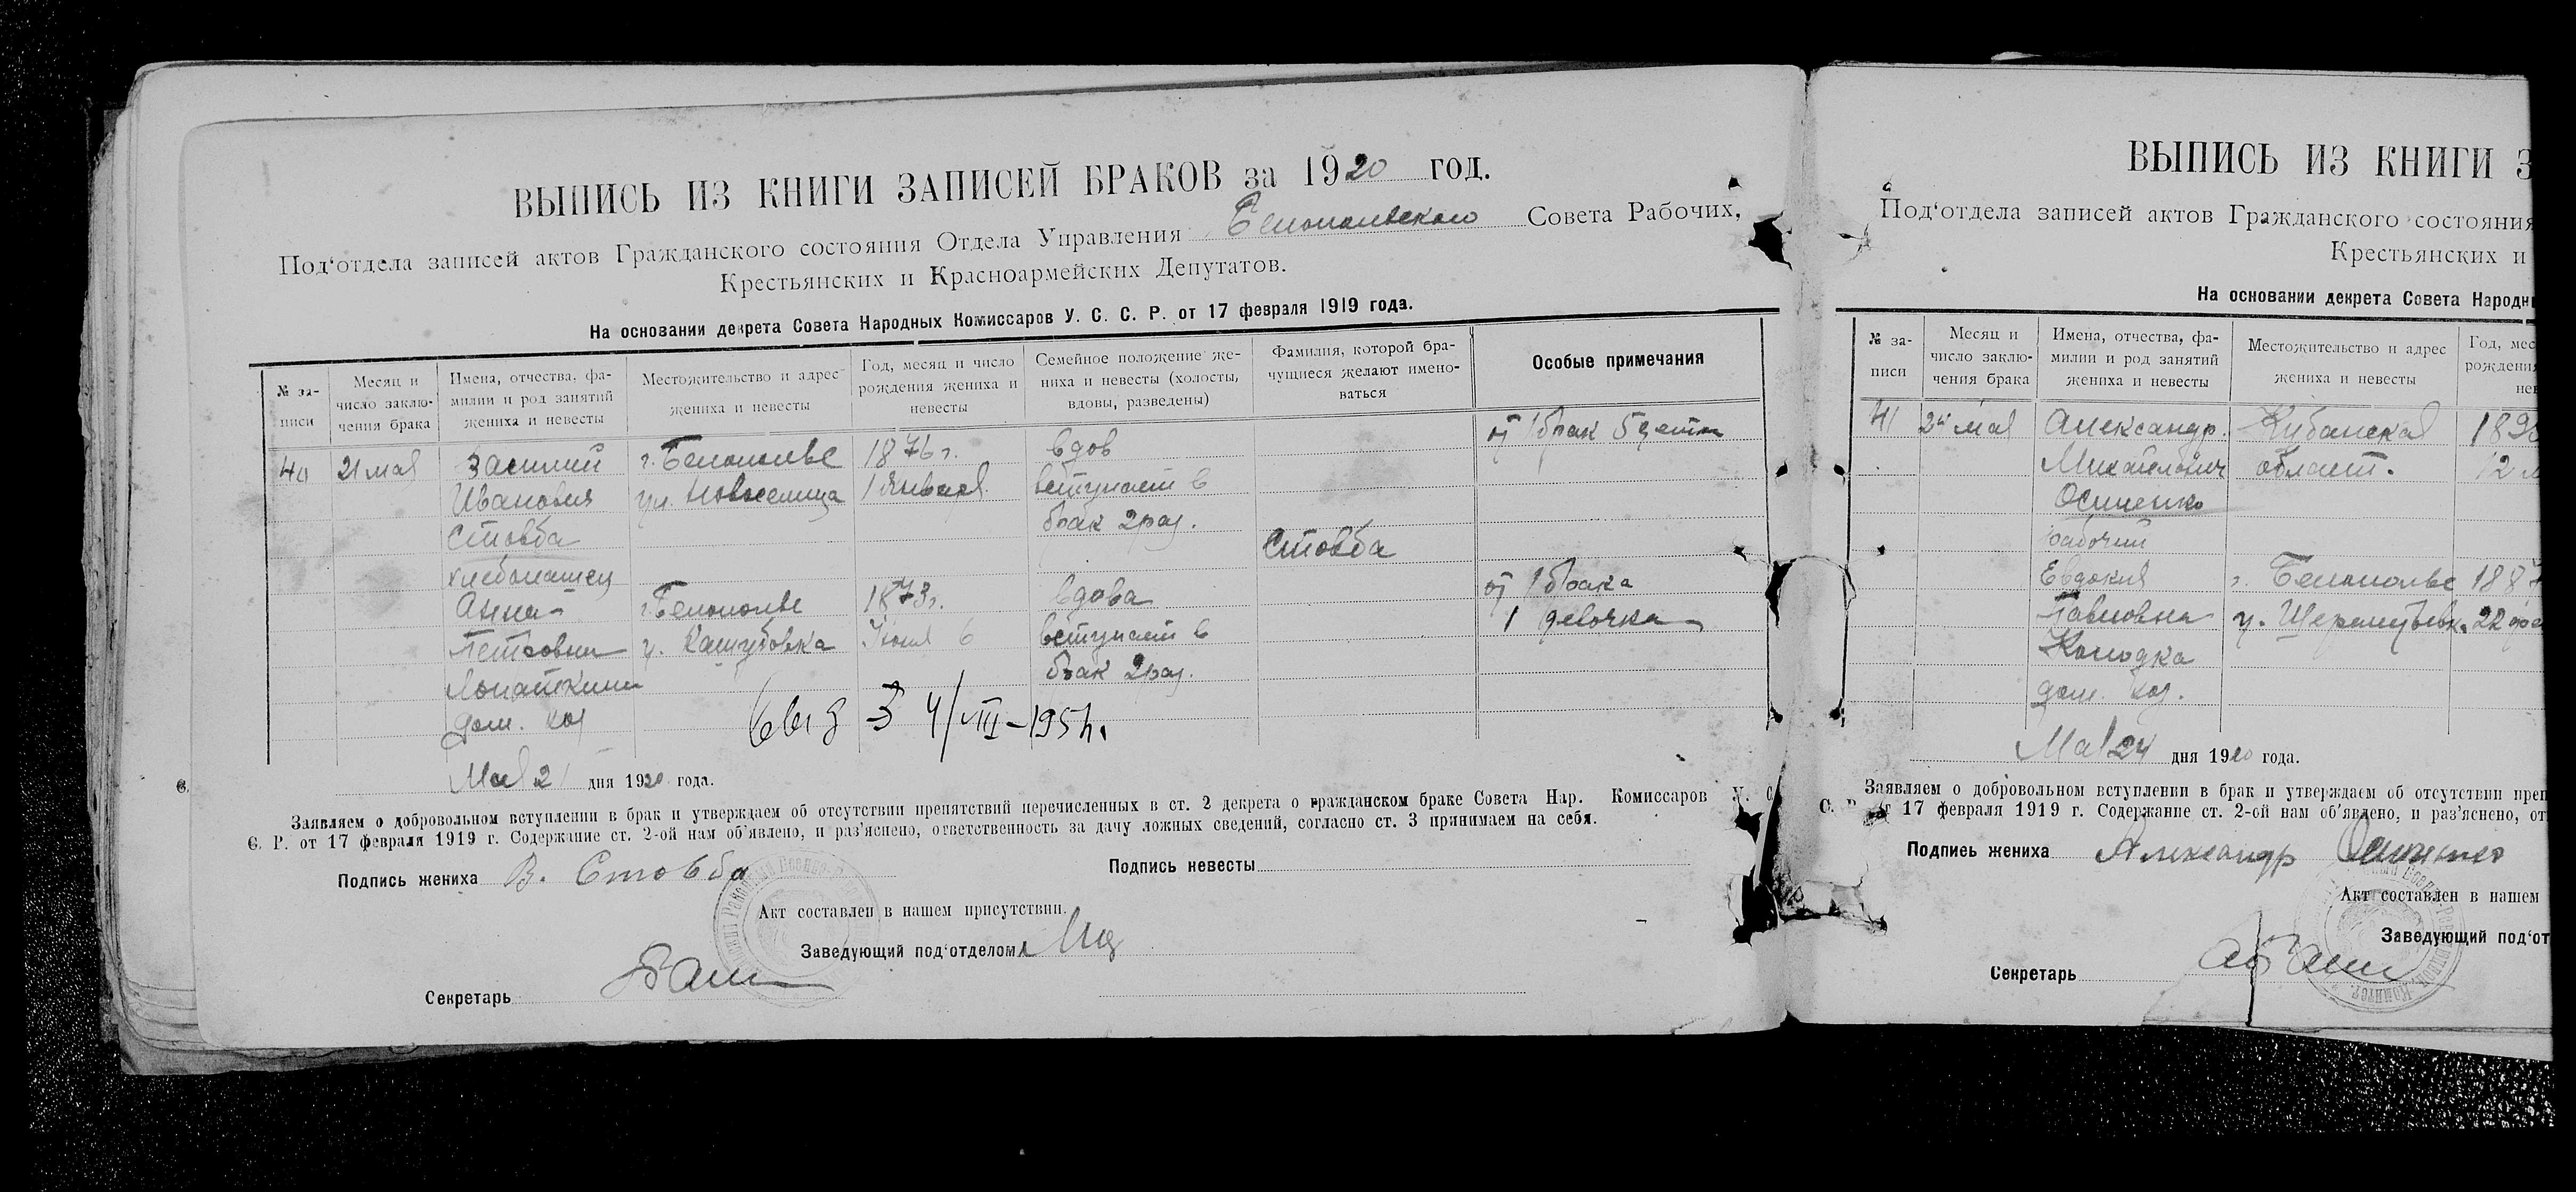 ВЫПИСЬ ИЗ КНИГИ ЗАПИСЕЙ БРАКОВ за 1920 год.
Под'отдела записей актов Гражданского состояния Отдела Управления Белопольского Совета Рабочих,
Крестьянских и Красноармейских Депутатов.
На основании декрета Совета Народных Комиссаров У. С. С. Р. от 17 февраля 1919 года.
№ за-
писи
Месяц и
число заклю-
чения брака
Имена, отчества, фа-
милии и род занятий
жениха и невесты
Местожительство и адрес
жениха и невесты
Год, месяц и число
рождения жениха и
невесты
Семейное положение же-
ниха и невесты (холосты,
вдовы, разведены)
Фамилия, которой бра-
чущиеся желают имено-
ваться
Особые примечания
от 1 брак 5 дети
40 21 мая Василий г. Белополье 1876 г. вдов
Иванович ул. Новоселица 1 Января вступает в
брак 2 раз.
Стовба Стовба
хлебопашец
Анна г. Белополье 1873 г. вдова от 1 брака
Петровна у. Кашубовка Июня 6 вступает в 1 девочка
Лопаткина брак 2 раз.
дом. хоз
4/VIII-195
Мая 21 дня 1920 года.
Заявляем о добровольном вступлении в брак и утверждаем об отсутствии препятствий перечисленных в ст. 2 декрета о гражданском браке Совета Нар. Комиссаров У. С.
С. Р. от 17 февраля 1919 г. Содержание ст. 2-ой нам об'явлено, и раз'яснено, ответственность за дачу ложных сведений, согласно ст. 3 принимаем на себя.
Подпись жениха В. Стовба Подпись невесты
Акт составлен в нашем присутствии.
Заведующий под'отделом
Секретарь
ВЫПИСЬ ИЗ КНИГИ З
Под'отдела записей актов Гражданского состояния
Крестьянских и
На основании декрета Совета Народн
№ за-
писи
Месяц и
число заклю-
чения брака
Имена, отчества, фа-
милии и род занятий
жениха и невесты
Местожительство и адрес
жениха и невесты
Год, мес
рождения
нев
41 24 мая Александр Кубанская 189
Михайлович област. 12 м
Осипенко
рабочий
Евдокия г. Белополье 1887
Павловна у. Шереметьевк. 22
Колодка
дом. хоз.
Мая 24 дня 1920 года.
Заявляем о добровольном вступлении в брак и утверждаем об отсутствии преп
С. Р. от 17 февраля 1919 г. Содержание ст. 2-ой нам об'явлено, и раз'яснено, от
Подпись жениха Александр Осипенко
Акт составлен в нашем
Заведующий под'от
Секретарь